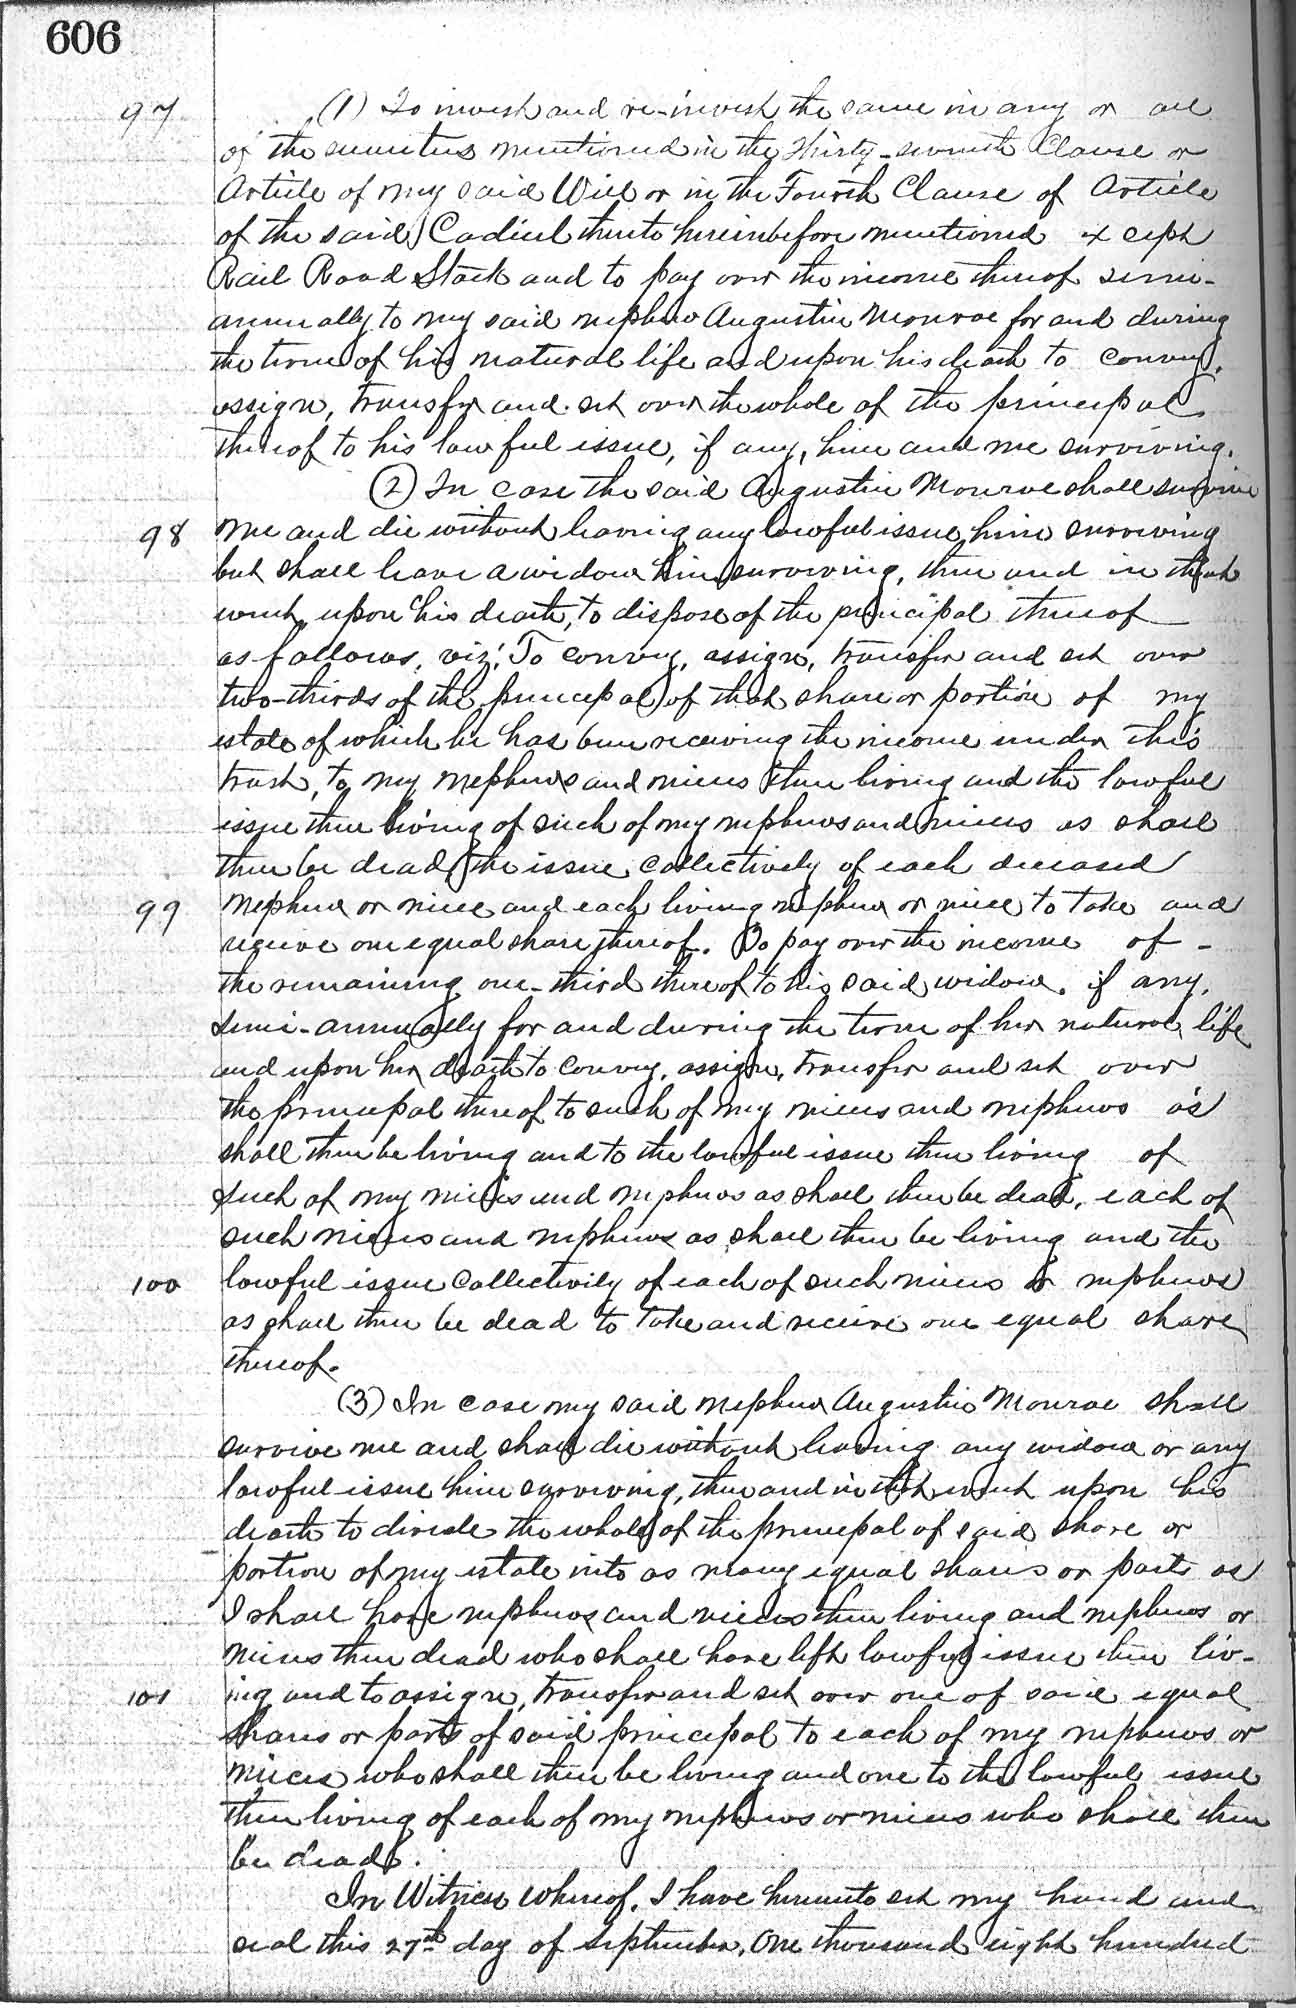 606
97 (1) To invest and re-invest the same in any or all
of the securities mentioned in the Thirty-seventh Clause or
Article of my said Will or in the Fourth Clause of Article
of the said Codicil thereto hereinbefore mentioned except
Rail Road Stock and to pay over the income thereof semi-
annually to my said nephew Augustin Monroe for and during
the time of his natural life and upon his death to convey,
assign, transfer and set over the whole of the principal
thereof to his lawful issue, if any, him and me surviving.
(2) In case the said Augustin Monroe shall survive
98 me and die without leaving any lawful issue him surviving
but shall leave a widow him surviving, then and in that
event, upon his death, to dispose of the principal thereof
as follows, viz: To convey, assign, transfer and set over
two-thirds of the principal of that share or portion of my
estate of which he has been receiving the income under this
trust, to my nephews and nieces then living and the lawful
issue then living of such of my nephews and nieces as shall
then be dead, the issue collectively of each deceased
99 nephew or niece and each living nephew or niece to take and
receive one equal share thereof. To pay over the income of -
the remaining one-third thereof to his said widow, if any,
semi-annually for and during the term of her natural life
and upon her death to convey, assign, transfer and set over
the principal thereof to such of my nieces and nephews as
shall then be living and to the lawful issue then living of
such of my nieces and nephews as shall then be dead, each of
such nieces and nephews as shall then be living and the
100 lawful issue collectively of each of such nieces or nephews
as shall then be dead to take and receive one equal share
thereof.
(3) In case my said nephew Augustin Monroe shall
survive me and shall die without leaving any widow or any
lawful issue him surviving, then and in that event upon his
death to divide the whole of the principal of said share or
portion of my estate into as many equal shares or parts as
I shall have nephews and nieces then living and nephews or
nieces then dead who shall have left lawful issue then liv-
101 ing and to assign, transfer and set over one of said equal
shares or parts of said principal to each of my nephews or
nieces who shall then be living and one to the lawful issue
then living of each of my nephews or nieces who shall then
be dead.
In Witness Whereof, I have hereunto set my hand and
seal this 27th day of September, One thousand eight hundred